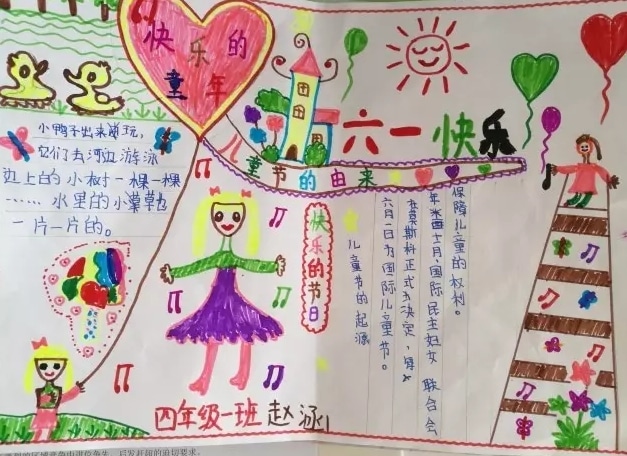 快乐的
童年
六一快乐
儿童节的由来
小鸭子出来游玩，
它们去河边游泳
边上的小树一棵一棵
……水里的小草
一片一片的。
快乐的节日
儿童节的起源
六月一日为国际儿童节。
在莫斯科正式决定，
国际民主妇女联合会
保障儿童的权利。
四年级一班 赵泳